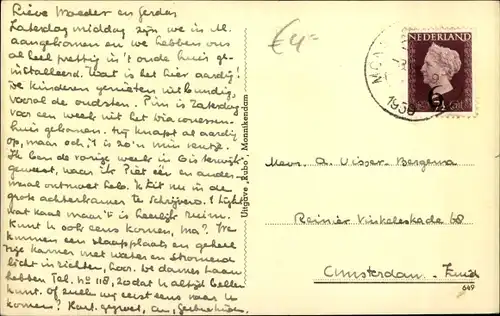 Lieve Moeder en Gerda,
Zaterdag middag zijn we in M.
aangekomen en we hebben ons
al heel prettig in 't oude huis ge-
installeerd. Wat is het hier aardig!
De kinderen genieten uitbundig,
vooral de oudsten. Pim is Zaterdag
voor een week uit het Diaconessen-
huis gekomen. Hij knapt al aardig
op, maar och, 't is zo'n min ventje.
Ik ben de vorige week in Oisterwijk
geweest, waar ik Piet een en ander-
maal ontmoet heb. Ik zit nu in de
grote achterkamer te schrijven.
wat kaal maar 't is heerlijk ruim.
Kunt U ook eens komen, Ma? We
kunnen een slaapplaats en gehele
vrije kamer met water en stromend
licht inrichten, hoor. De dames Laan
hebben Tel. No 118, zodat U altijd bellen
kunt. Of zullen wij eerst eens naar U
komen? Hart. gegroet, an,
Uitgave „Rubo", Monnikendam
€4=
MON
1950
NEDERLAND
6
7½ cent
Mevr. A. Visser-Bergema
Reinier Vinkeleskade 68
Amsterdam-Zuid
649